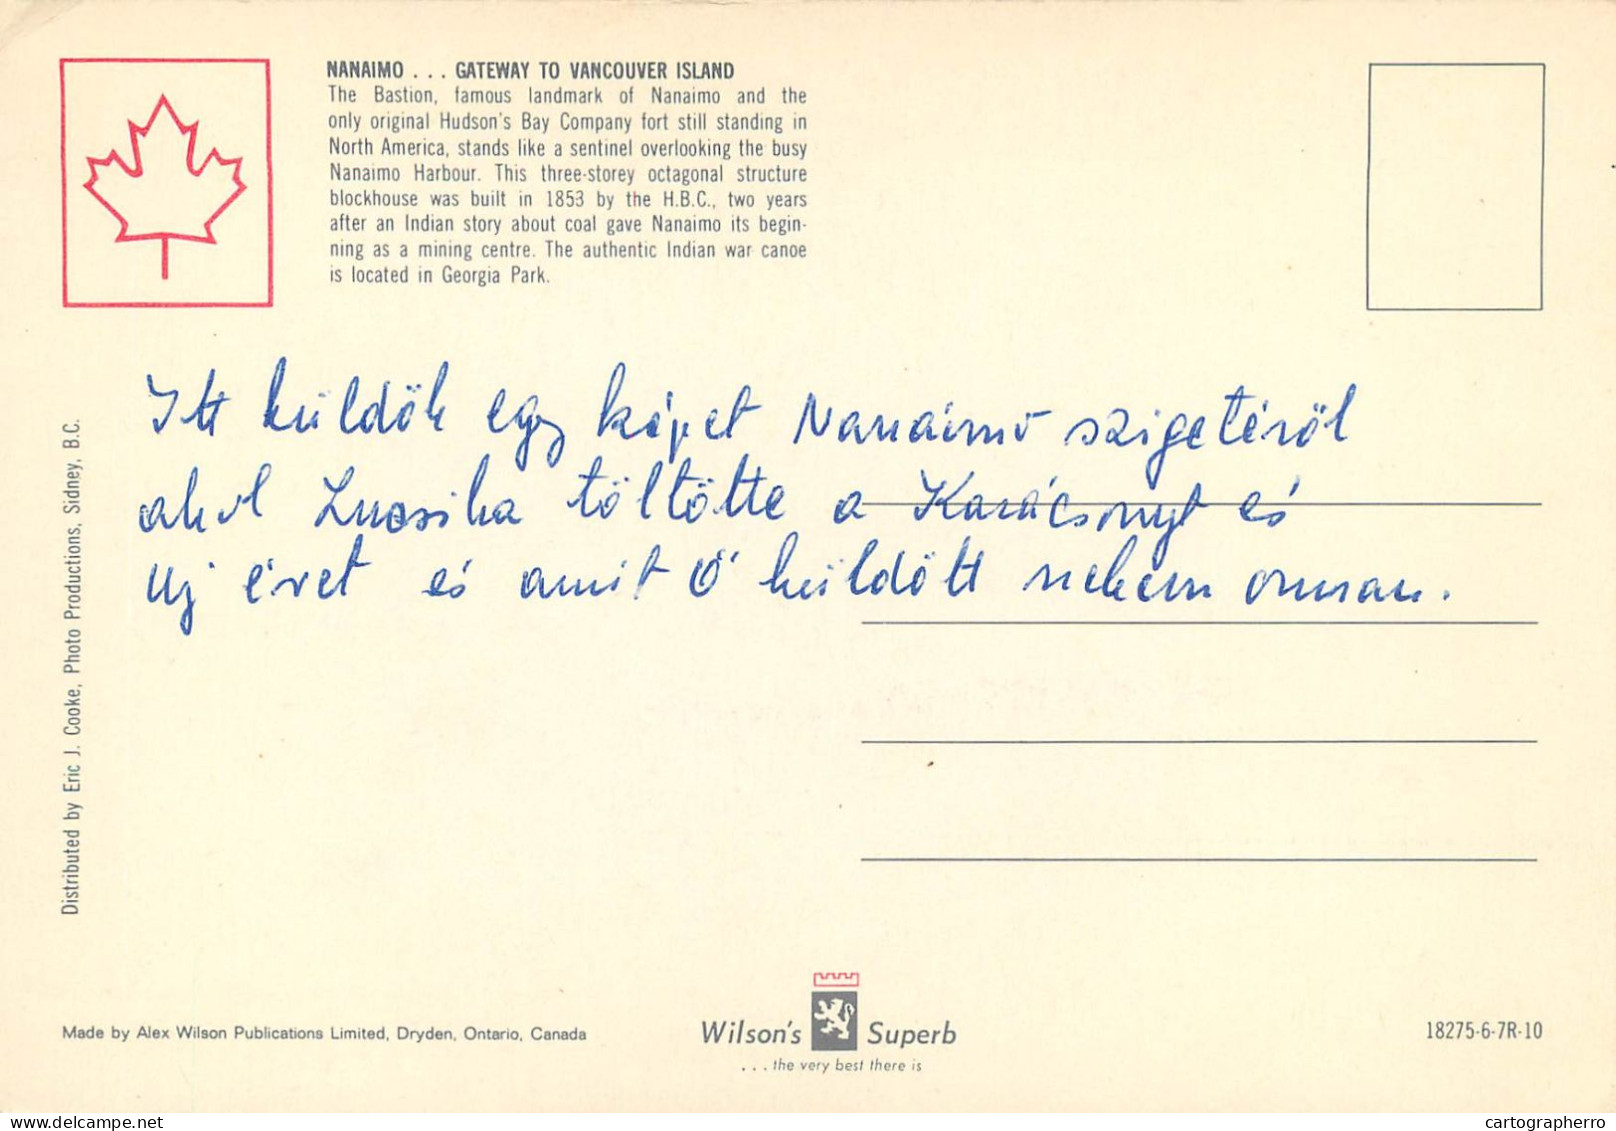 NANAIMO . . . GATEWAY TO VANCOUVER ISLAND
The Bastion, famous landmark of Nanaimo and the
only original Hudson's Bay Company fort still standing in
North America, stands like a sentinel overlooking the busy
Nanaimo Harbour. This three-storey octagonal structure
blockhouse was built in 1853 by the H.B.C., two years
after an Indian story about coal gave Nanaimo its begin-
ning as a mining centre. The authentic Indian war canoe
is located in Georgia Park.
Itt küldök egy képet Nanaimo szigetéröl
ahol töltötte a Karácsonyt és
uj évet és amit Ö küldött nekem onnan.
Distributed by Eric J. Cooke, Photo Productions, Sidney, B.C.
Made by Alex Wilson Publications Limited, Dryden, Ontario, Canada
Wilson's Superb
. . . the very best there is
18275-6-7R-10
cartographerro